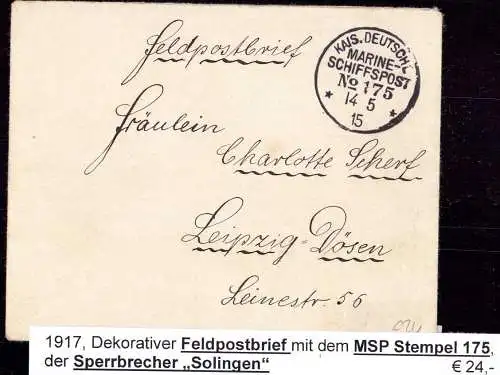 Feldpostbrief
KAIS. DEUTSCHE
MARINE-
SCHIFFSPOST
No 175
* 14 5 *
15
Fräulein
Charlotte Scherf
Leipzig-Dösen
Leinestr. 56
1917, Dekorativer Feldpostbrief mit dem MSP Stempel 175,
der Sperrbrecher „Solingen“
€ 24,-